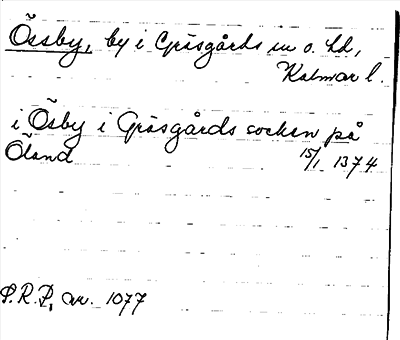 Össby, by i Gräsgårds sn o. hd,
Kalmar l.
i Ösby i Gräsgårds socken på
Öland 15/1 1374
S.R.P, nr. 1077